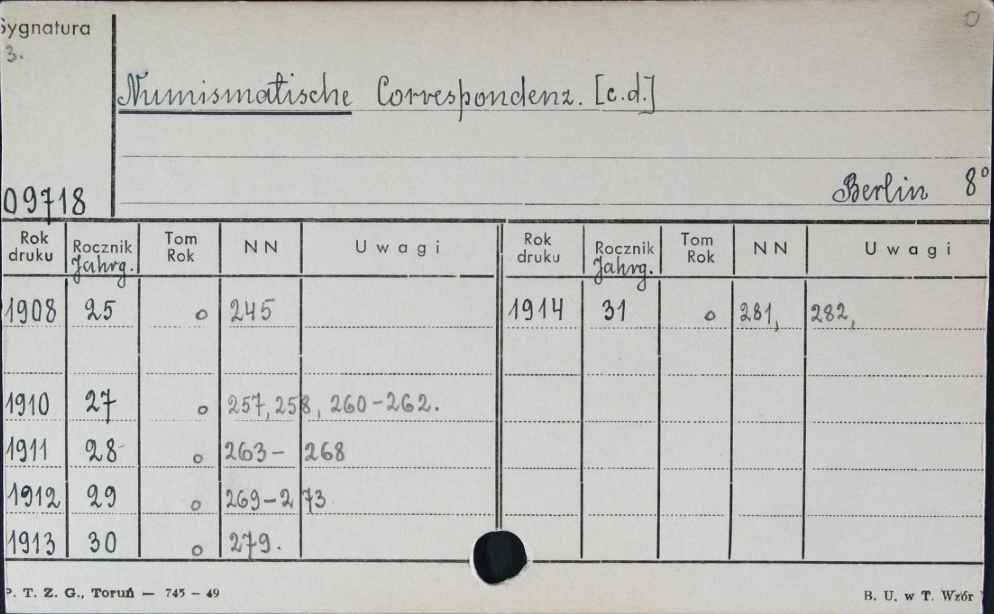 Sygnatura
3.
0
Numismatische Correspondenz. [c.d.]
09718
Berlin 8°
Rok druku Rocznik Jahrg. Tom Rok NN Uwagi Rok druku Rocznik Jahrg. Tom Rok NN Uwagi
1908 25 0 245 1914 31 0 281, 282,
1910 27 0 257, 258, 260-262.
1911 28 0 263- 268
1912 29 0 269-273
1913 30 0 279.
P. T. Z. G., Toruń — 745 - 49 B. U. w T. Wzór